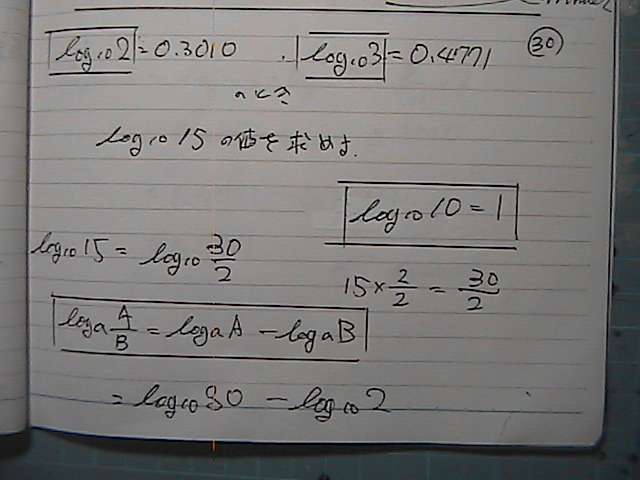 ㉚
log₁₀2 = 0.3010 . log₁₀3 = 0.4771
のとき
log₁₀15 の値を求めよ.
log₁₀10 = 1
log₁₀15 = log₁₀ 30/2
15 × 2/2 = 30/2
logₐ A/B = logₐA − logₐB
= log₁₀30 − log₁₀2